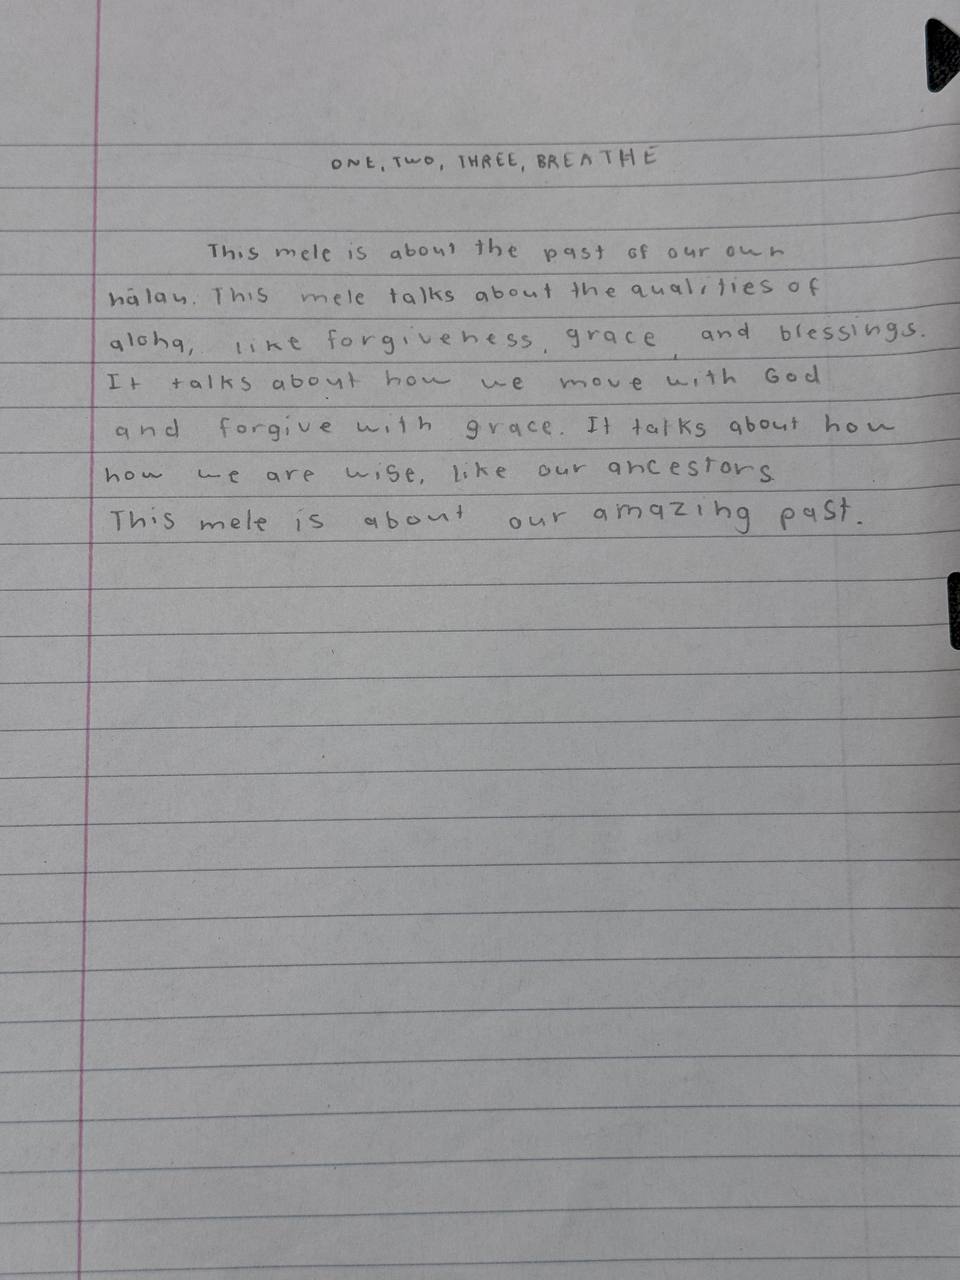 ONE, TWO, THREE, BREATHE
This mele is about the past of our own
hālau. This mele talks about the qualities of
aloha, like forgiveness, grace, and blessings.
It talks about how we move with God
and forgive with grace. It talks about how
how we are wise, like our ancestors
This mele is about our amazing past.